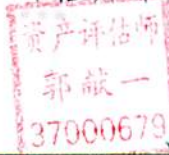 资产评估师
郭献一
37000679